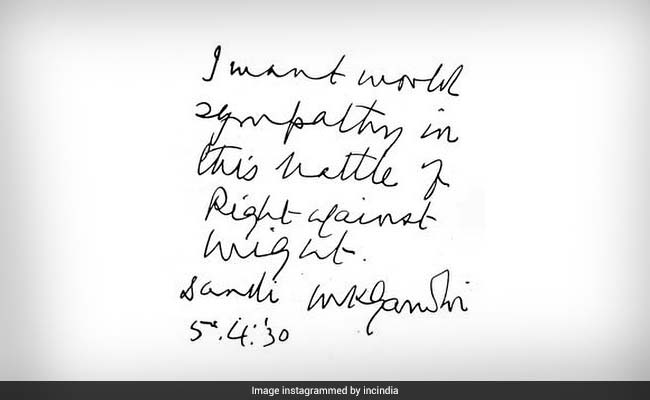 I want world
sympathy in
this battle of
Right against
might.
Dandi MKGandhi
5.4.'30
Image instagrammed by incindia